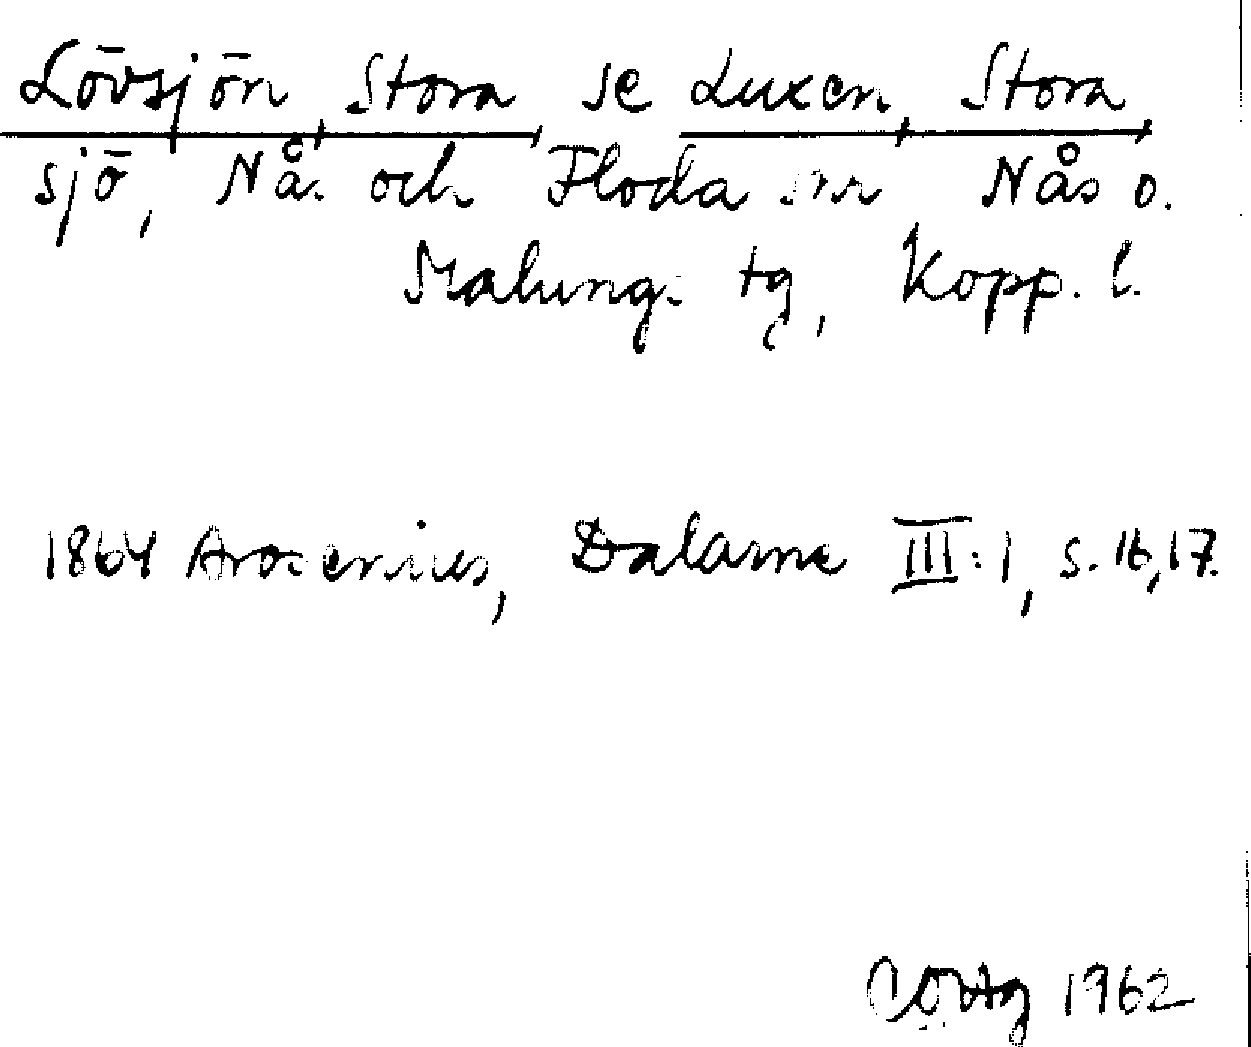 Lövsjön Stora se Luxen Stora
sjö, Nås och Floda snr Nås o.
Malungs tg, Kopp. l.
1864 Arosenius, Dalarne III:1, s. 16,17.
1962